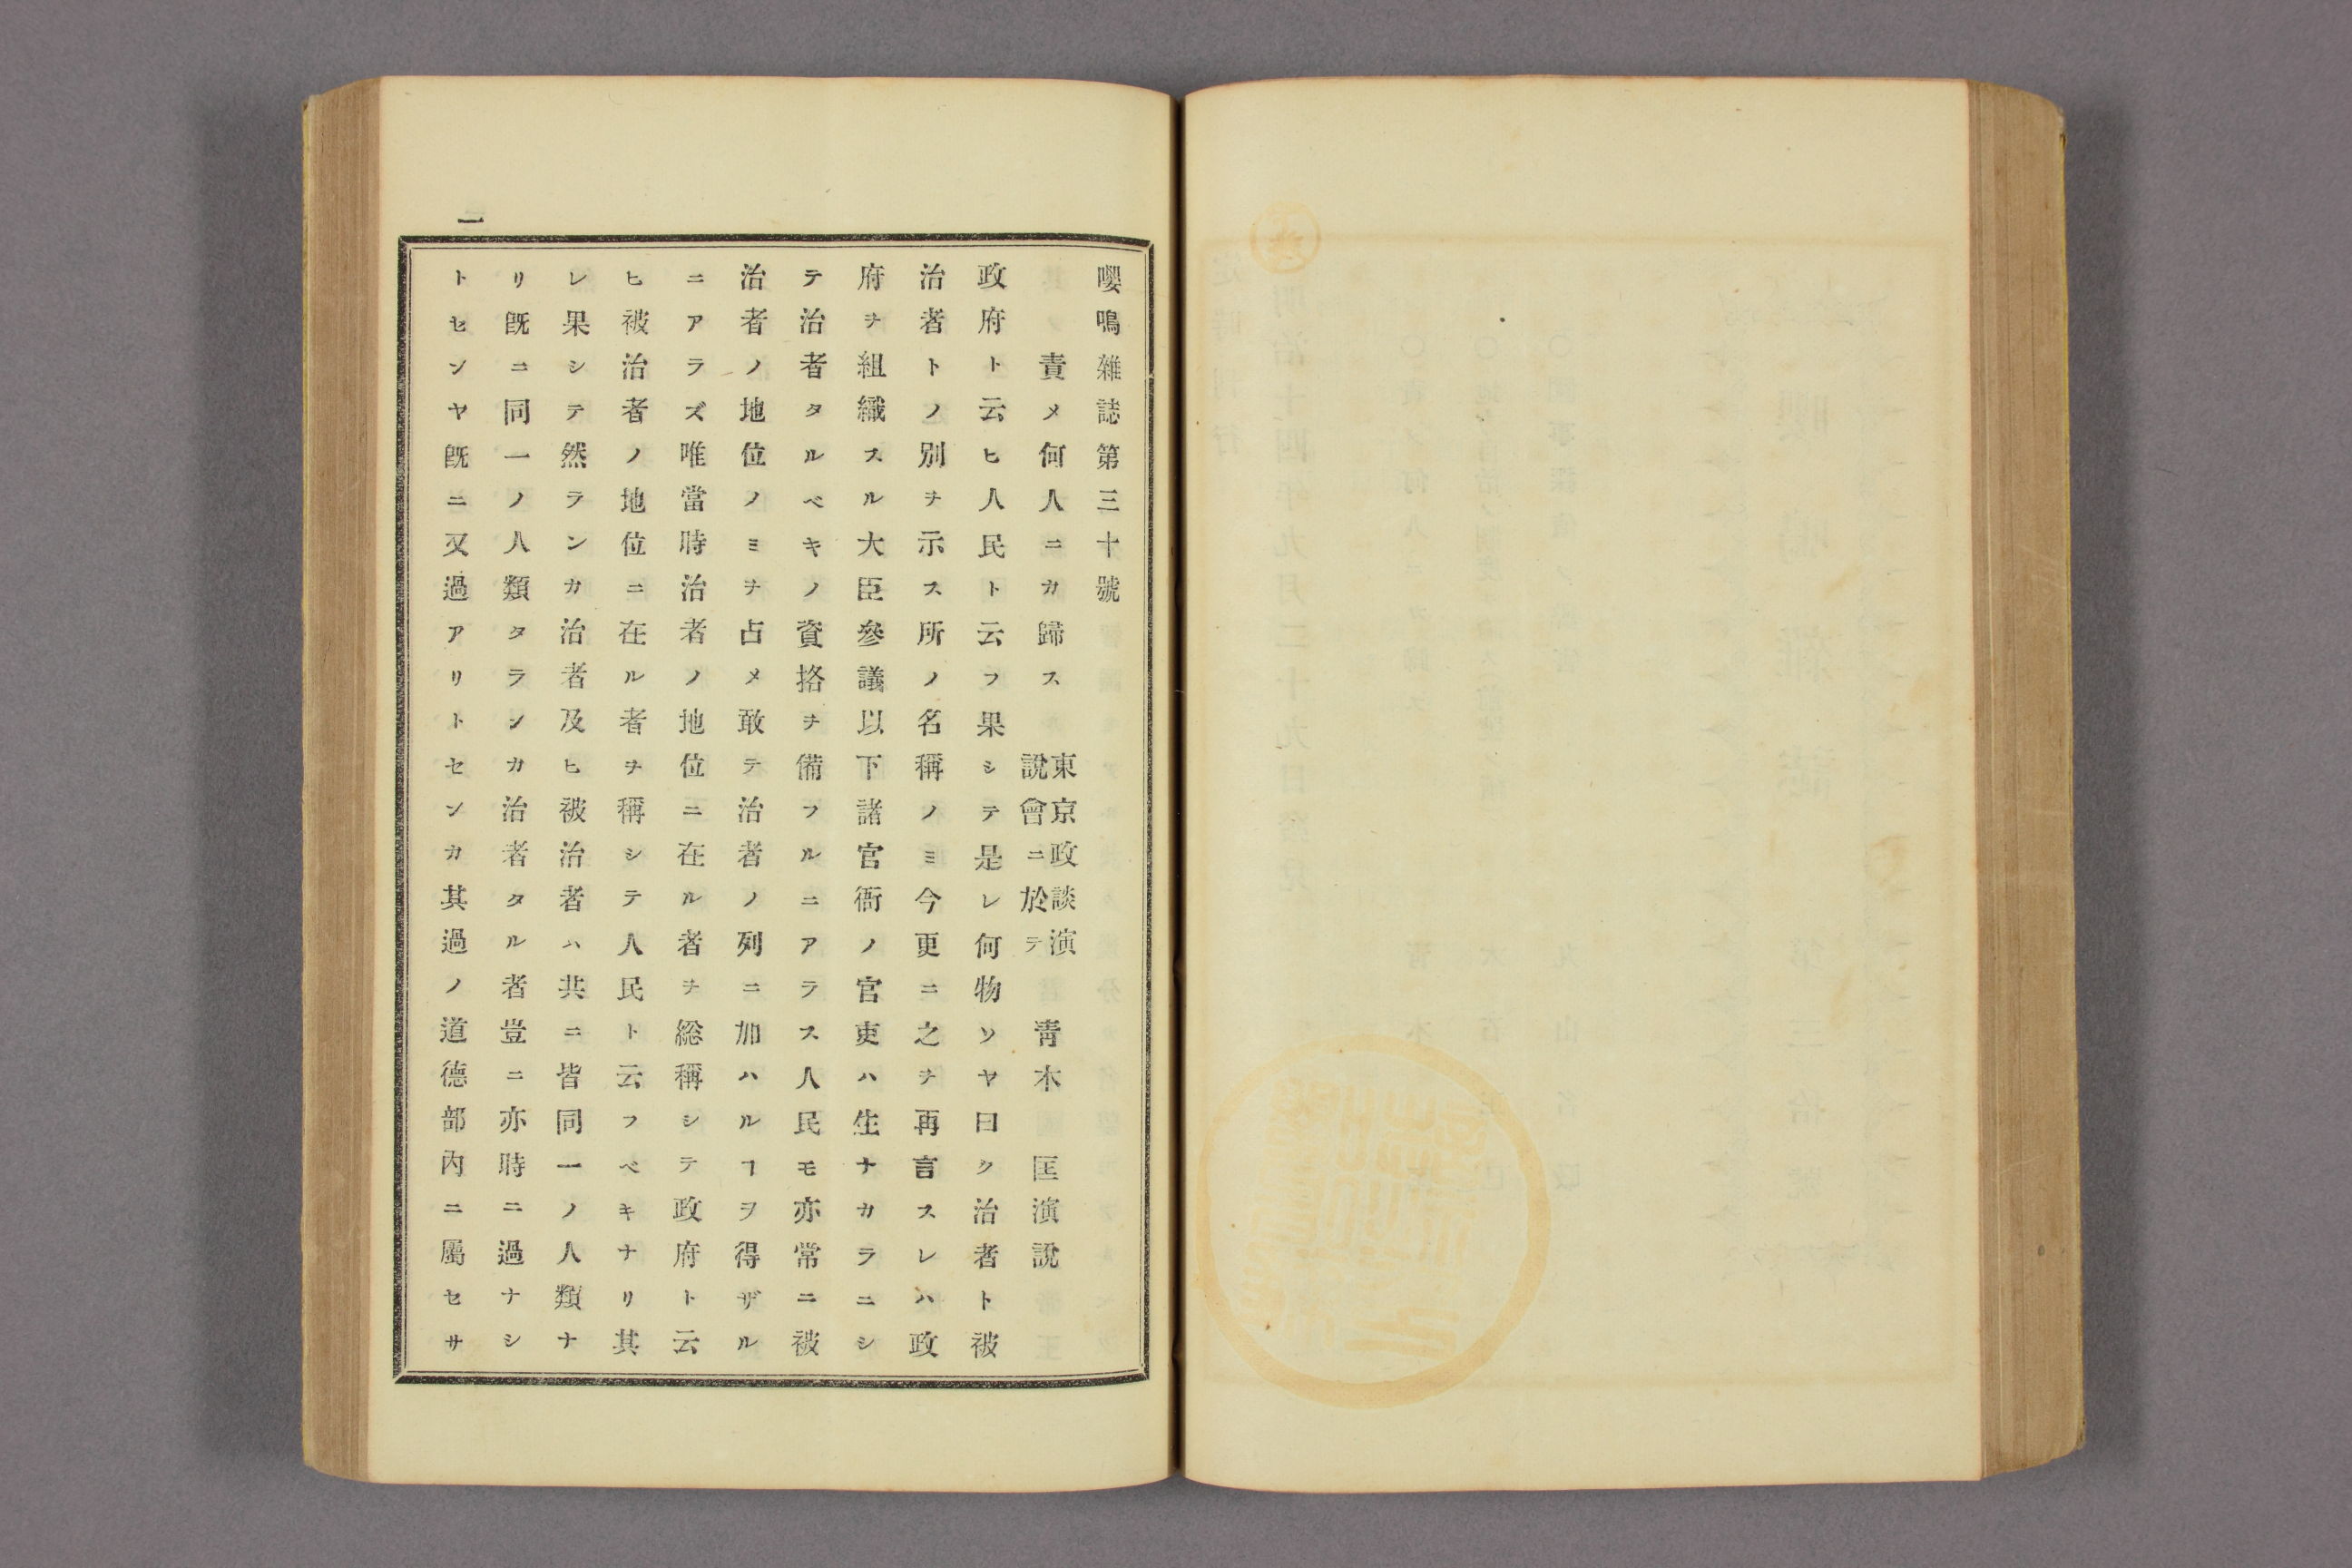 嚶鳴雜誌第三十號
責メ何人ニカ歸ス
東京政談演
說會ニ於テ
靑木匡演說
政府ト云ヒ人民ト云フ果シテ是レ何物ソヤ曰ク治者ト被
治者トノ別ヲ示ス所ノ名稱ノミ今更ニ之ヲ再言スレハ政
府ヲ組織スル大臣參議以下諸官衙ノ官吏ハ生ナカラニシ
テ治者タルベキノ資挌ヲ備フルニアラス人民モ亦常ニ被
治者ノ地位ノミヲ占メ敢テ治者ノ列ニ加ハルヿヲ得ザル
ニアラズ唯當時治者ノ地位ニ在ル者ヲ総稱シテ政府ト云
ヒ被治者ノ地位ニ在ル者ヲ稱シテ人民ト云フベキナリ其
レ果シテ然ラン カ治者及ヒ被治者ハ共ニ皆同一ノ人類ナ
リ既ニ同一ノ人類タランカ治者タル者豈ニ亦時ニ過ナシ
トセンヤ既ニ又過アリトセンカ其過ノ道德部內ニ屬セサ
一